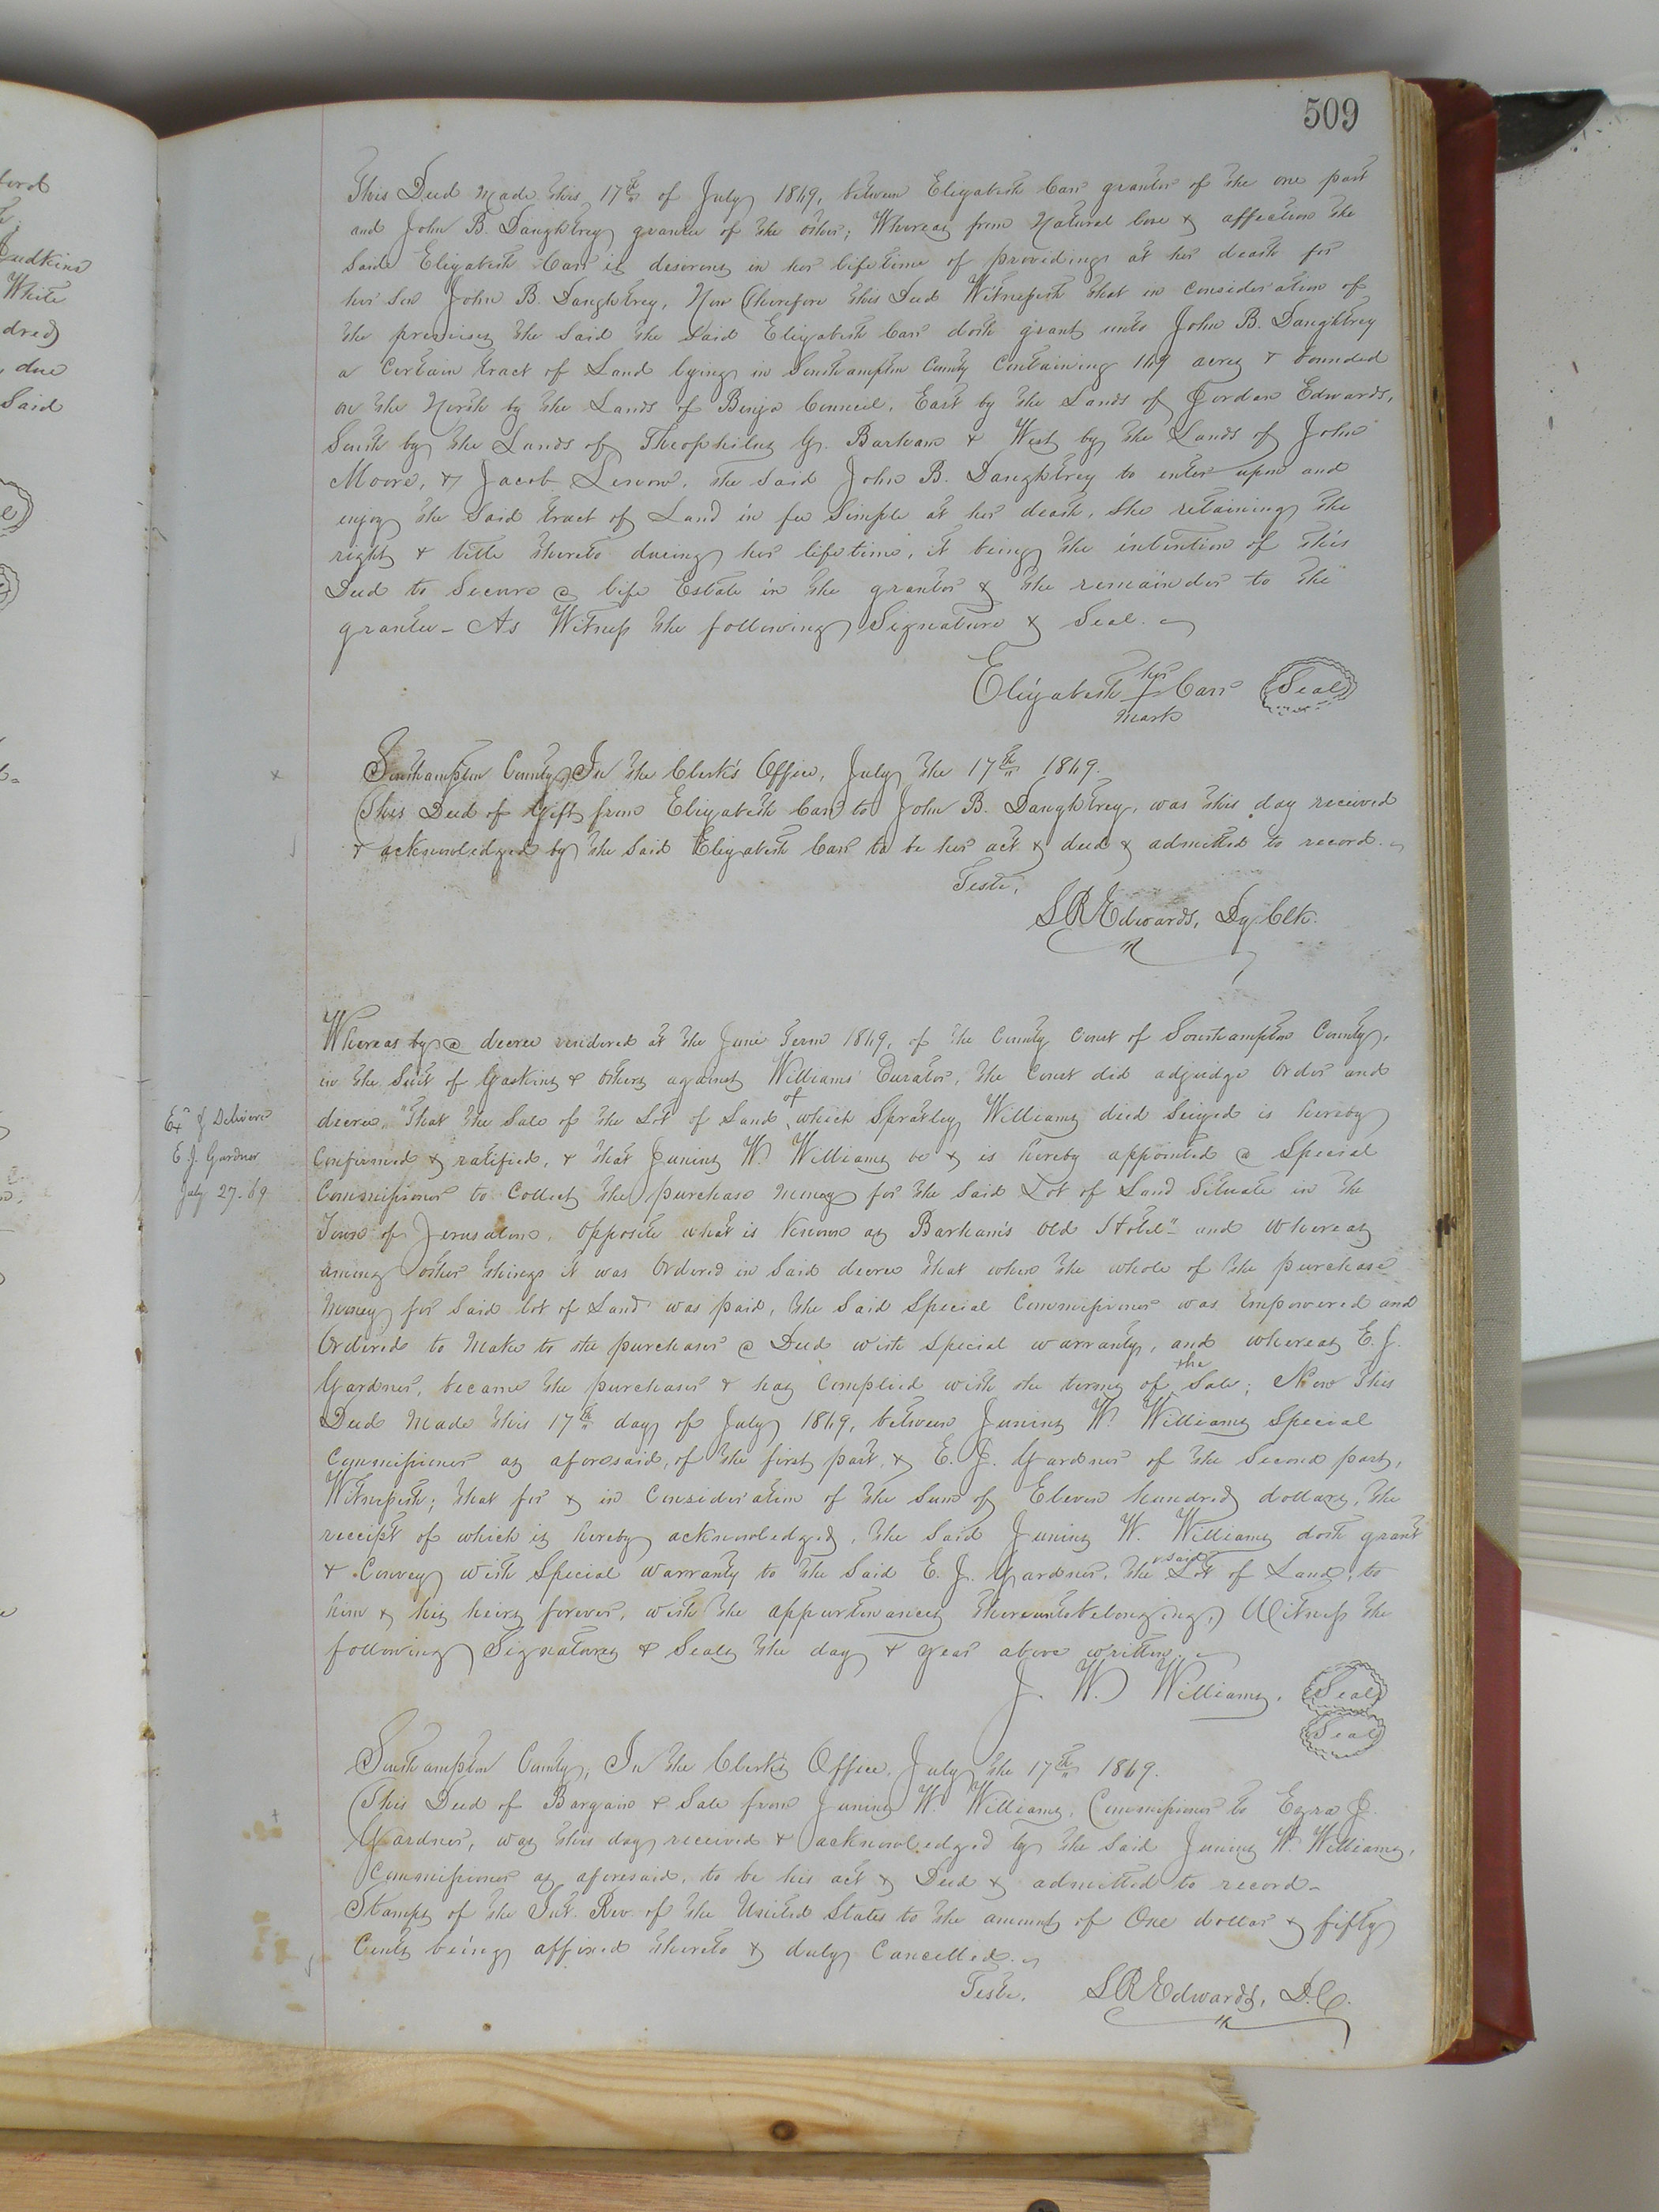 509
This Deed made this 17th of July 1869, between Elizabeth Carr grantor of the one part
and John B. Daughtrey grantee of the other; Whereas from Natural love & affection the
Said Elizabeth Carr is desirous in her lifetime of providing at her death for
her Son John B. Daughtrey, Now Therefore this Deed Witnesseth that in consideration of
the premises the Said the Said Elizabeth Carr doth grant unto John B. Daughtrey
a Certain tract of Land lying in Southampton County Containing 149 acres & bounded
on the North by the Lands of Benja Council, East by the Lands of Jordan Edwards,
South by the Lands of Theophilus G. Barham & West by the Lands of John
Moore, & Jacob . The Said John B. Daughtrey to enter upon and
enjoy the Said tract of Land in fee Simple at her death, She retaining the
right & title thereto during her lifetime, it being the intention of this
Deed to Secure a life Estate in the grantor & the remainder to the
grantee - As Witness the following Signature & Seal.
her
Elizabeth + Carr Seal
mark
Southampton County, In the Clerk's Office, July the 17th 1869.
This Deed of Gift from Elizabeth Carr to John B. Daughtrey, was this day received
& acknowledged by the Said Elizabeth Carr to be her act & deed & admitted to record.
Teste,
S R Edwards, Dy Clk.
Whereas by a decree rendered at the June Term 1869, of the County Court of Southampton County,
in the Suit of Gaskins & others against Williams' Curator, the Court did adjudge order and
decree, "That the Sale of the Lot of Land of which Spratley Williams died Seized is hereby
Confirmed & ratified, & that Junius W. Williams be & is hereby appointed a Special
Commissioner to Collect the purchase money for the Said Lot of Land Situate in the
Town of Jerusalem, opposite what is Known as Barham's old Hotel" and whereas
among other things it was Ordered in Said decree that when the whole of the purchase
money for Said lot of Land was paid, the Said Special Commissioner was Empowered and
Ordered to Make to the purchaser a Deed with Special warranty, and whereas E. J.
Gardner, became the purchaser & has Complied with the terms of the Sale; Now This
Deed Made this 17th day of July 1869, between Junius W. Williams Special
Commissioner as aforesaid, of the first part, & E. J. Gardner of the Second part,
Witnesseth; that for & in Consideration of the Sum of Eleven hundred dollars, the
receipt of which is hereby acknowledged, the Said Junius W. Williams doth grant
& Convey with Special Warranty to the Said E. J. Gardner, the said Lot of Land, to
him & his heirs forever, with the appurtenances thereunto belonging, Witness the
following Signatures & Seals the day & year above written.
J. W. Williams. Seal
Seal
Southampton County, In the Clerks Office, July the 17th 1869.
This Deed of Bargain & Sale from Junius W. Williams, Commissioner to Ezra J.
Gardner, was this day received & acknowledged by the Said Junius W. Williams,
Commissioner as aforesaid, to be his act & Deed & admitted to record -
Stamps of the Int. Rev. of the United States to the amount of One dollar & fifty
Cents being affixed thereto & duly Cancelled.
Teste. S R Edwards, D.C.
Exd & Delivered
E. J. Gardner
July 27. 69
Judkins
White
dred
, due
Said